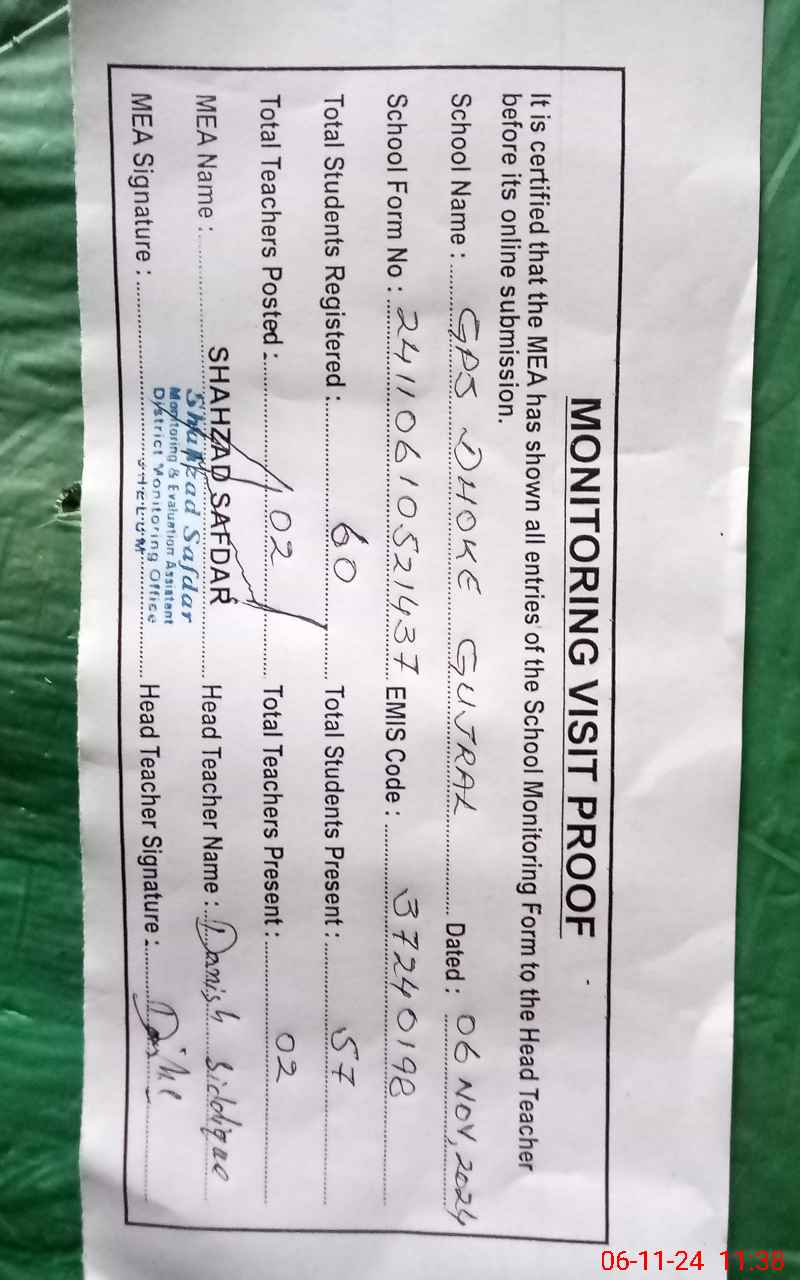 MONITORING VISIT PROOF
It is certified that the MEA has shown all entries of the School Monitoring Form to the Head Teacher
before its online submission.
School Name : GPS DHOKE GUJRAL Dated : 06 NOV, 2024
School Form No : 24110610521437 EMIS Code : 37240198
Total Students Registered : 60 Total Students Present : 57
Total Teachers Posted : 02 Total Teachers Present : 02
MEA Name : SHAHZAD SAFDAR Head Teacher Name : Danish Siddique
Shahzad Safdar
Monitoring & Evaluation Assistant
District Monitoring Office
JHELUM
MEA Signature : Head Teacher Signature :
06-11-24 11:38